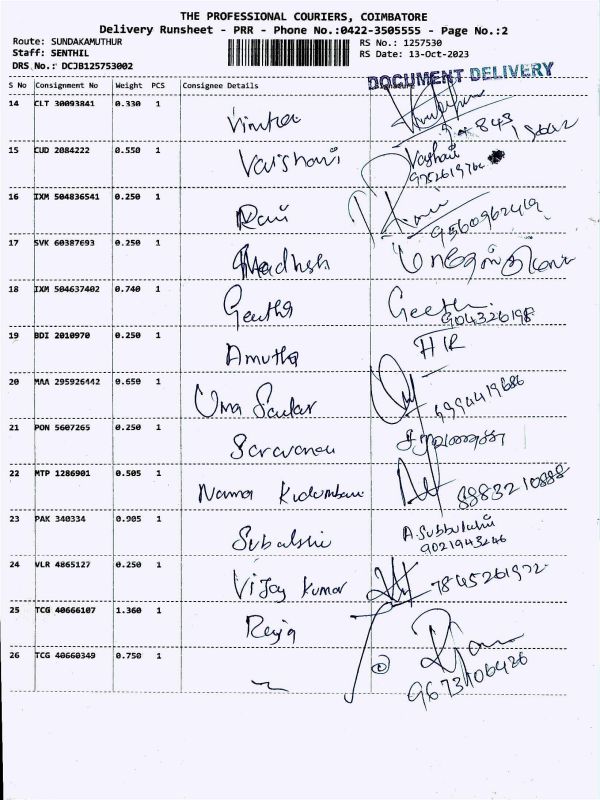 THE PROFESSIONAL COURIERS, COIMBATORE
Delivery Runsheet - PRR - Phone No.:0422-3505555 - Page No.:2
Route: SUNDAKAMUTHUR RS No.: 1257530
Staff: SENTHIL RS Date: 13-Oct-2023
DRS No.: DCJB125753002
DOCUMENT DELIVERY
S No Consignment No Weight PCS Consignee Details Signature
14 CLT 30093841 0.330 1
15 CUD 2084222 0.550 1 Vaishani Vaishani
16 IXM 504836541 0.250 1 Ravi
9560962419
17 SVK 60387693 0.250 1 Madhesh
18 IXM 504637402 0.740 1 Geetha Geetha
904326198
19 BDI 2010970 0.250 1 Amutha
20 MAA 295926442 0.650 1 Uma Sankar
9994419686
21 PON 5607265 0.250 1 Saravanan
22 MTP 1286901 0.505 1 Namma Kudumbam 8883210888
23 PAK 340334 0.905 1 A. Subbulakshmi
9021943246
24 VLR 4865127 0.250 1 Vijay Kumar 7845261972
25 TCG 40666107 1.360 1
26 TCG 40660349 0.750 1
9673106426